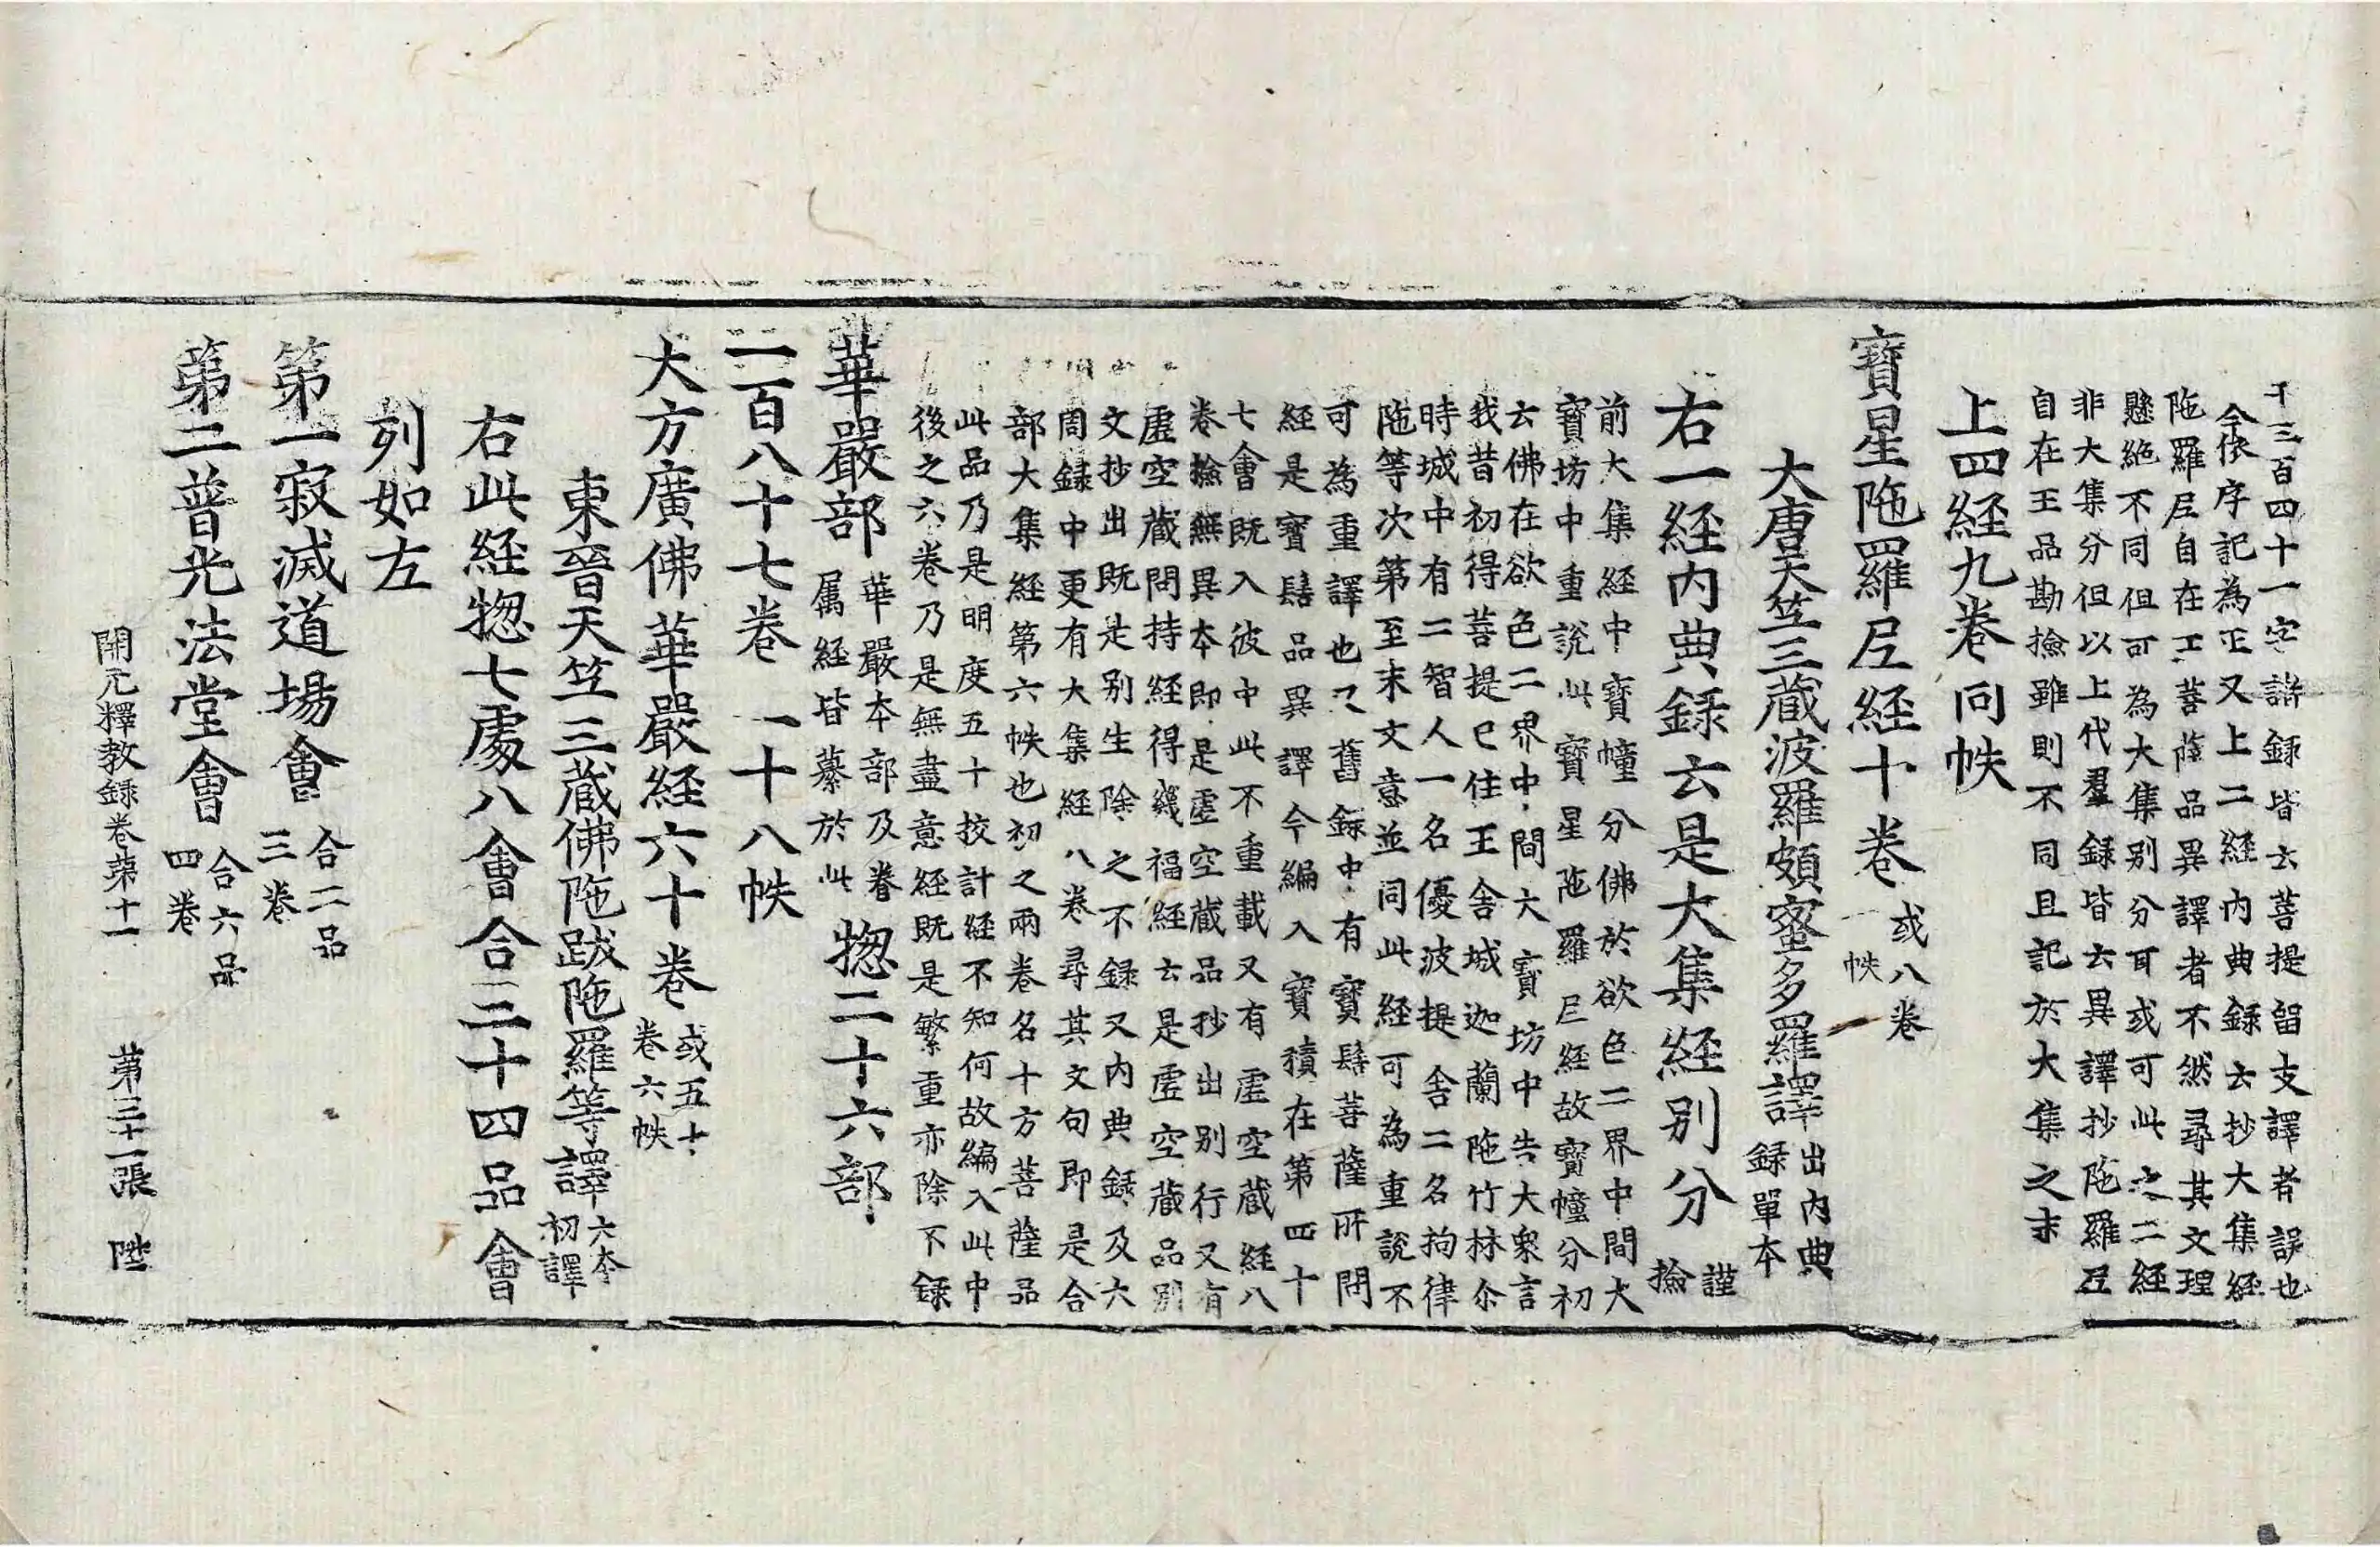 千三百四十一字諸録皆云菩提留支譯者誤也
今依序記為正又上二経内典録云抄大集経
陁羅尼自在王菩薩品異譯者不然尋其文理
懸絶不同但可為大集别分耳或可此之二経
非大集分但以上代羣録皆云異譯抄陁羅尼
自在王品勘撿雖則不同且記於大集之末
上四経九卷同帙
寶星陁羅尼経十卷
或八卷
帙
大唐天竺三蔵波羅頗蜜多羅譯
出内典
録單本
右一経内典録云是大集経别分
謹
撿
前大集経中寶幢分佛於欲色二界中間大
寶坊中重說此寶星陁羅尼経故寶幢分初
云佛在欲色二界中間大寶坊中告大衆言
我昔初得菩提已住王舍城迦蘭陁竹林尒
時城中有二智人一名優波提舍二名拘律
陁等次第至末文意並同此経可為重說不
可為重譯也又舊録中有寶髻菩薩所問
経是寶髻品異譯今編入寶積在第四十
七會既入彼中此不重載又有虚空蔵経八
卷撿無異本即是虚空蔵品抄出别行又有
虚空蔵問持経得幾福経云是虚空蔵品别
文抄出既是别生除之不録又内典録及大
周録中更有大集経八卷尋其文句即是合
部大集経第六帙也初之兩卷名十方菩薩品
此品乃是明度五十挍計経不知何故編入此中
後之六卷乃是無盡意経既是繁重亦除不録
華嚴部
華嚴夲部及眷
属経皆纂於此
惣二十六部
二百八十七卷 一十八帙
大方廣佛華嚴経六十卷
或五十
卷六帙
東晉天竺三蔵佛陁跋陁羅等譯
六夲
初譯
右此経惣七處八會合三十四品會
列如左
第一寂滅道場會
合二品
三卷
第二普光法堂會
合六品
四卷
開元釋教録卷第十一 第三十一張 陞